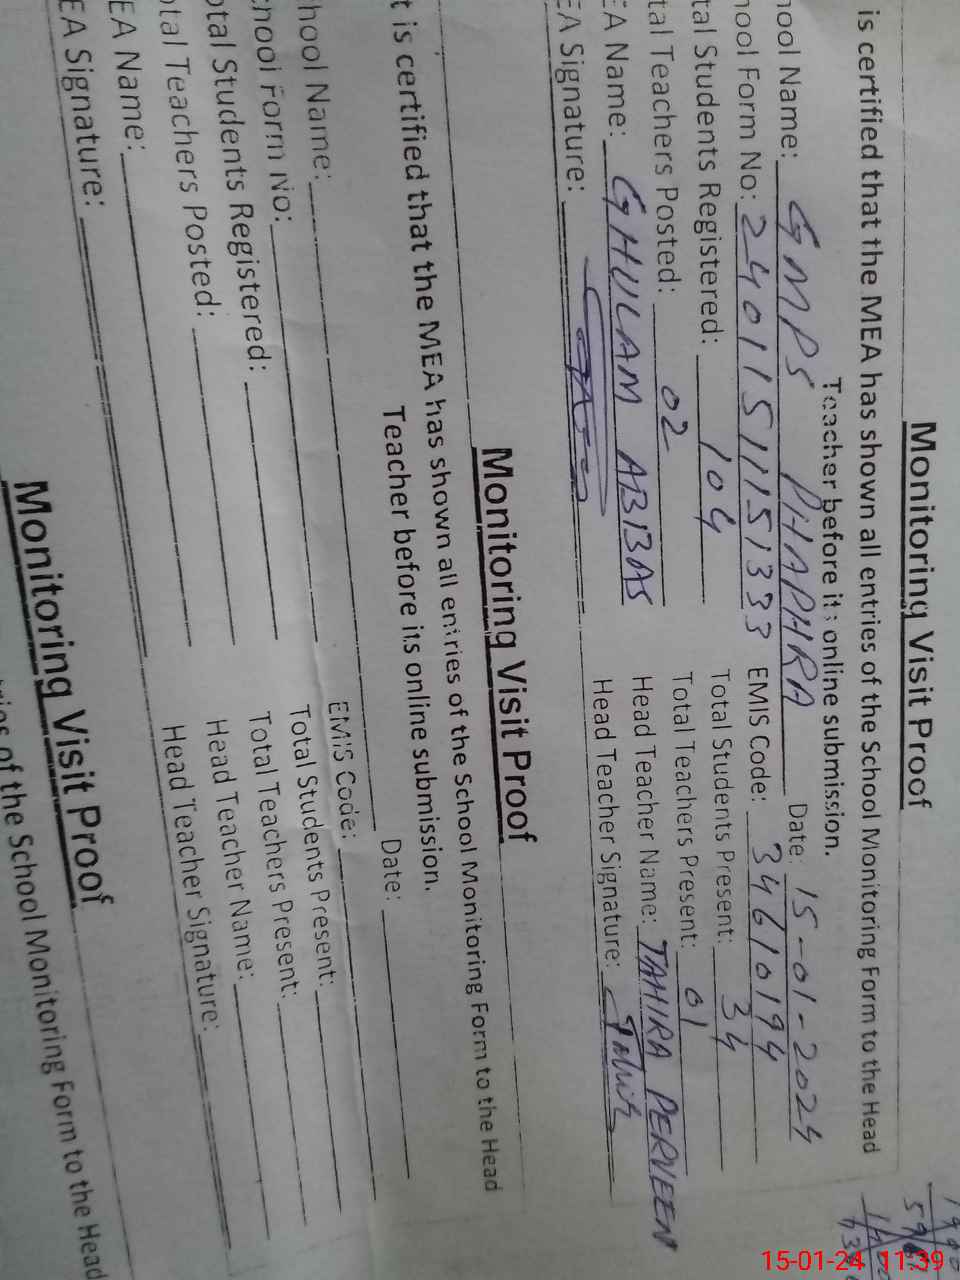 Monitoring Visit Proof
is certified that the MEA has shown all entries of the School Monitoring Form to the Head
Teacher before its online submission.
hool Name: GMPS PHAPHRA Date: 15-01-2024
hool Form No: 24011511151333 EMIS Code: 34610194
tal Students Registered: 104 Total Students Present: 34
tal Teachers Posted: 02 Total Teachers Present: 01
EA Name: GHULAM ABBAS Head Teacher Name: TAHIRA PERVEEN
EA Signature: Head Teacher Signature:
Monitoring Visit Proof
t is certified that the MEA has shown all entries of the School Monitoring Form to the Head
Teacher before its online submission.
hool Name: Date:
chool Form No: EMIS Code:
otal Students Registered: Total Students Present:
otal Teachers Posted: Total Teachers Present:
EA Name: Head Teacher Name:
EA Signature: Head Teacher Signature:
Monitoring Visit Proof
ries of the School Monitoring Form to the Head
15-01-24 11:39